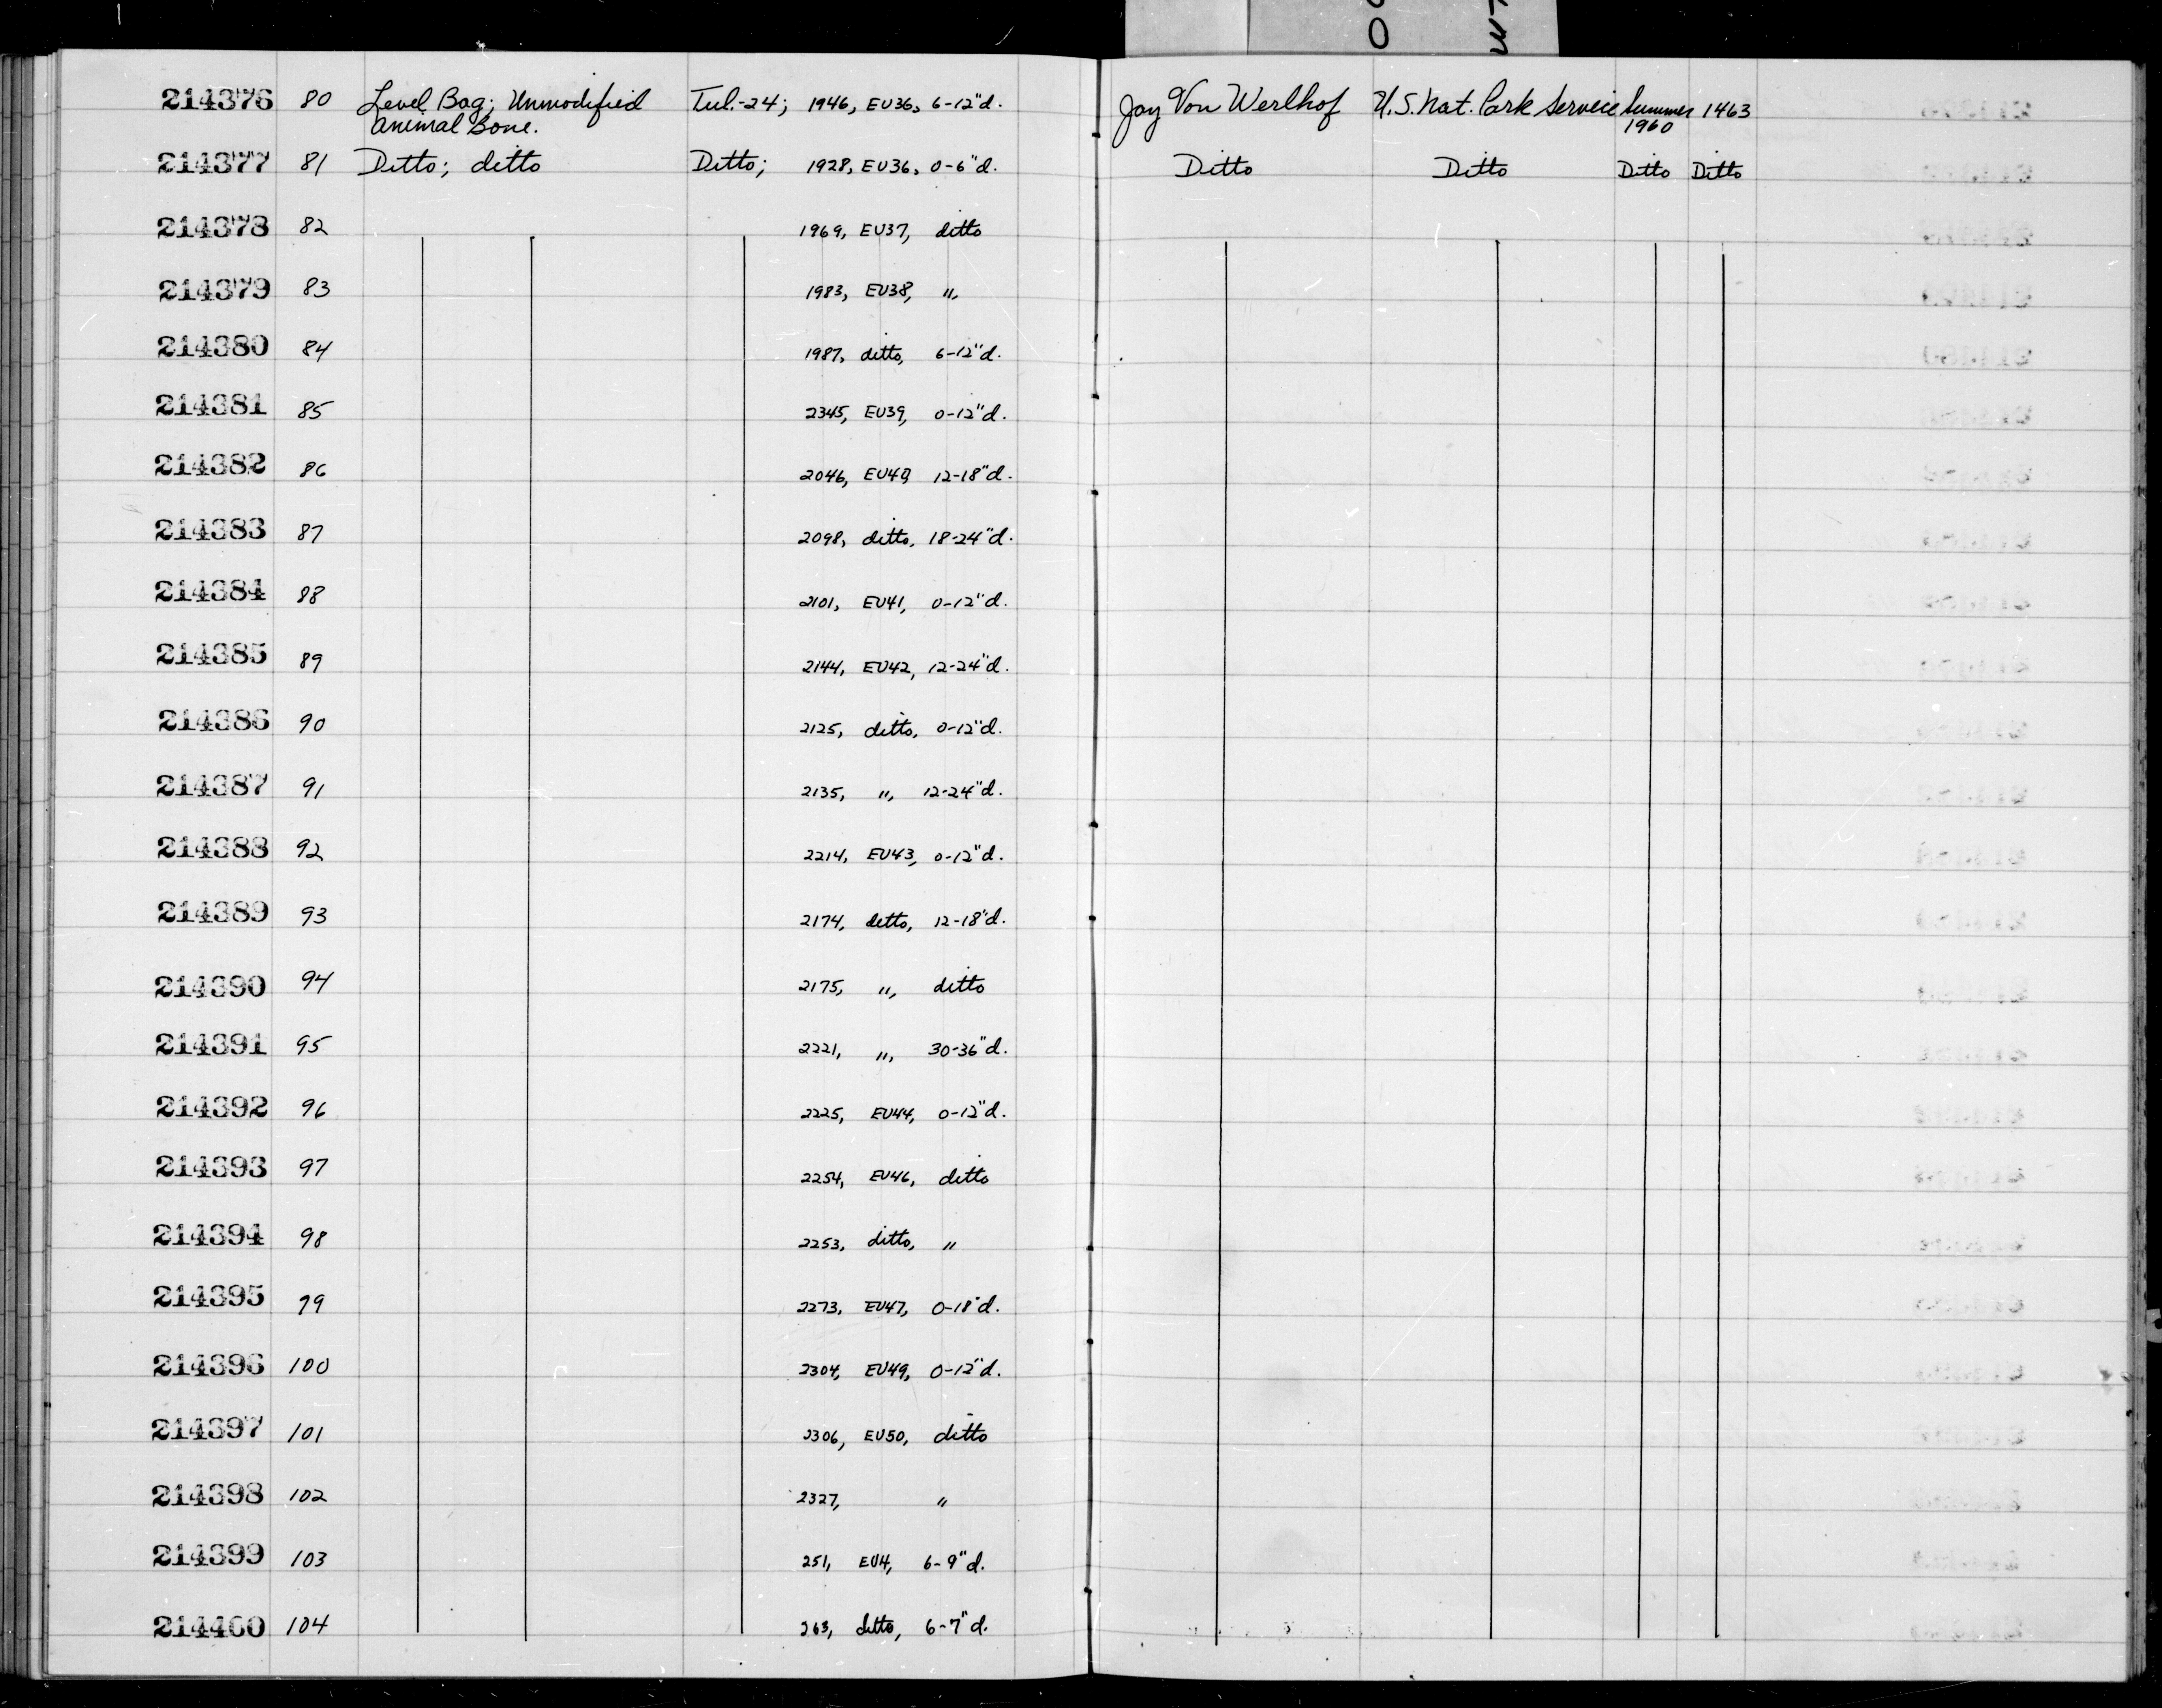 214376 80 Level Bag; Unmodified Tul.-24; 1946, EU36, 6-12"d. Jay Von Werlhof U.S. Nat. Park Service Summer 1463
Animal Bone. 1960
214377 81 Ditto; ditto Ditto; 1928, EU36, 0-6"d. Ditto Ditto Ditto Ditto
214378 82 1969, EU37, ditto
214379 83 1983, EU38, ",
214380 84 1987, ditto, 6-12"d.
214381 85 2345, EU39, 0-12"d.
214382 86 2046, EU40, 12-18"d.
214383 87 2098, ditto, 18-24"d.
214384 88 2101, EU41, 0-12"d.
214385 89 2144, EU42, 12-24"d.
214386 90 2125, ditto, 0-12"d.
214387 91 2135, ", 12-24"d.
214388 92 2214, EU43, 0-12"d.
214389 93 2174, ditto, 12-18"d.
214390 94 2175, ", ditto
214391 95 2221, ", 30-36"d.
214392 96 2225, EU44, 0-12"d.
214393 97 2254, EU46, ditto
214394 98 2253, ditto, "
214395 99 2273, EU47, 0-18"d.
214396 100 2304, EU49, 0-12"d.
214397 101 2306, EU50, ditto
214398 102 2327, "
214399 103 251, EU4, 6-9"d.
214400 104 263, ditto, 6-7"d.